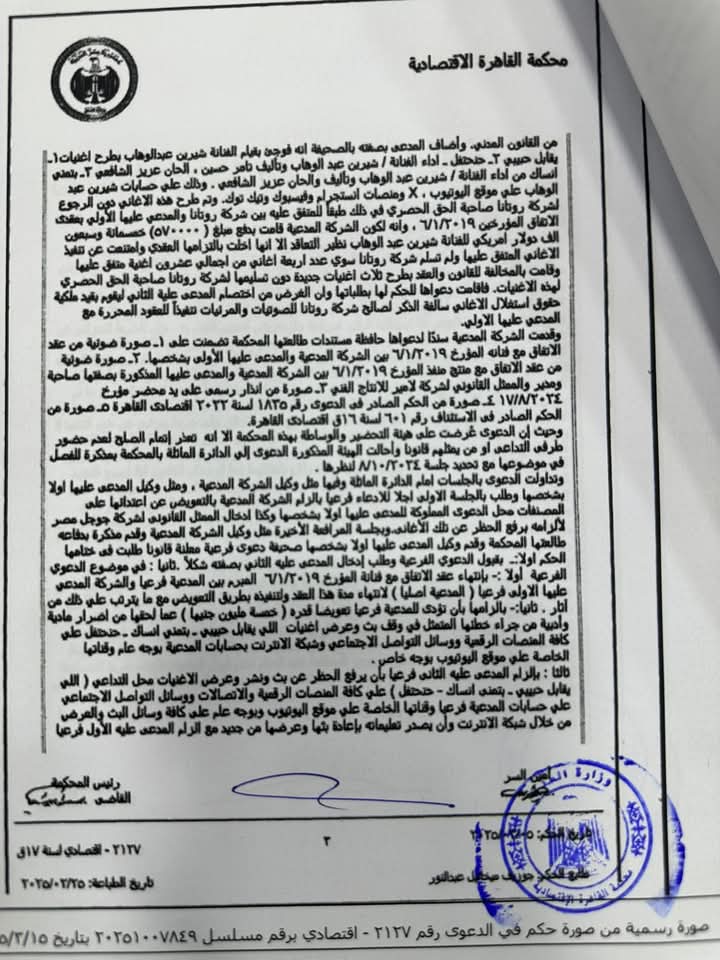 محكمة القاهرة الاقتصادية
من القانون المدني. وأضاف المدعى بصفته بالصحيفة انه فوجئ بقيام الفنانة شيرين عبدالوهاب بطرح اغنيات ١ـ
يقابل حبيبي ٢ـ حنحتفل ـ اداء الفنانة / شيرين عبد الوهاب وتأليف تامر حسين ، الحان عزيز الشافعي ٣ـ بتمنى
انساك من اداء الفنانة / شيرين عبد الوهاب وتأليف والحان عزيز الشافعي . وذلك علي حسابات شيرين عبد
الوهاب علي موقع اليوتيوب ، X ومنصات انستجرام وفيسبوك وتيك توك. وتم طرح هذه الاغاني دون الرجوع
لشركة روتانا صاحبة الحق الحصري في ذلك طبقاً للمتفق عليه بين شركة روتانا والمدعي عليها الأولي بعقدى
الاتفاق المؤرخين ٦/١/٢٠١٩ ، وانه لكون الشركة المدعية قامت بدفع مبلغ (٥٧٠٠٠٠) خمسمائة وسبعون
الف دولار أمريكي للفنانة شيرين عبد الوهاب نظير التعاقد الا انها اخلت بالتزامها العقدي وامتنعت عن تنفيذ
الاغاني المتفق عليها ولم تسلم شركة روتانا سوي عدد اربعة اغاني من اجمالي عشرون اغنية متفق عليها
وقامت بالمخالفة للقانون والعقد بطرح ثلاث اغنيات جديدة دون تسليمها لشركة روتانا صاحبة الحق الحصري
لهذه الاغنيات. فاقامت دعواها للحكم لها بطلباتها وان الغرض من اختصام المدعى علية الثاني ليقوم بقيد ملكية
حقوق استغلال الاغاني سالفة الذكر لصالح شركة روتانا للصوتيات والمرئيات تنفيذاً للعقود المحررة مع
المدعي عليها الاولي.
وقدمت الشركة المدعية سندًا لدعواها حافظة مستندات طالعتها المحكمة تضمنت على ١ـ صورة ضوئية من عقد
الاتفاق مع فنانه المؤرخ ٦/١/٢٠١٩ بين الشركة المدعية والمدعى عليها الأولى بشخصها. ٢ـ صورة ضوئية
من عقد الاتفاق مع منتج منفذ المؤرخ ٦/١/٢٠١٩ بين الشركة المدعية والمدعى عليها المذكورة بصفتها صاحبة
ومدير والممثل القانوني لشركة لامير للانتاج الفني ٣ـ صورة من انذار رسمى على يد محضر مؤرخ
١٧/٨/٢٠٢٤ ٤ـ صورة من الحكم الصادر في الدعوى رقم ١٨٣٥ لسنة ٢٠٢٢ اقتصادى القاهرة ٥ـ صورة من
الحكم الصادر فى الاستئناف رقم ٦٠١ لسنة ١٦ق اقتصادى القاهرة.
وحيث إن الدعوى عُرضت على هيئة التحضير والوساطة بهذه المحكمة الا انه تعذر إتمام الصلح لعدم حضور
طرفى التداعى او من يمثلهم قانونا وأحالت الهيئة المذكورة الدعوى إلى الدائرة الماثلة بالمحكمة بمذكرة للفصل
في موضوعها مع تحديد جلسة ٨/١٠/٢٠٢٤ لنظرها .
وتداولت الدعوى بالجلسات امام الدائرة الماثلة وفيها مثل وكيل الشركة المدعية ، ومثل وكيل المدعى عليها اولا
بشخصها وطلب بالجلسة الاولى اجلا للادعاء فرعيا بالزام الشركة المدعية بالتعويض عن اعتدائها على
المصنفات محل الدعوى المملوكة للمدعى عليها اولا بشخصها وكذا ادخال الممثل القانونى لشركة جوجل مصر
لألزامه برفع الحظر عن تلك الأغانى.وبجلسة المرافعة الأخيرة مثل وكيل الشركة المدعية وقدم مذكرة بدفاعه
طالعتها المحكمة وقدم وكيل المدعى عليها اولا بشخصها صحيفة دعوى فرعية معلنة قانونا طلبت فى ختامها
الحكم اولا:ـ بقبول الدعوي الفرعية وطلب إدخال المدعى عليه الثاني بصفته شكلاً .ثانيا : في موضوع الدعوي
الفرعية اولا :- بإنتهاء عقد الاتفاق مع فنانة المؤرخ ٦/١/٢٠١٩ المبرم بين المدعية فرعيا والشركة المدعي
عليها الاولى فرعيا ( المدعية اصليا ) لانتهاء مدة هذا العقد ولتنفيذه بطريق التعويض مع ما يترتب علي ذلك من
آثار . ثانيا:- بالزامها بأن تؤدى للمدعية فرعيا تعويضا قدره ( خمسة مليون جنيها ) عما لحقها من اضرار مادية
وأدبية من جراء خطئها المتمثل في وقف بث وعرض اغنيات اللي يقابل حبيبي ـ بتمنى انساك ـ حنحتفل علي
كافة المنصات الرقمية ووسائل التواصل الاجتماعي وشبكة الانترنت بحسابات المدعية بوجه عام وقناتها
الخاصة علي موقع اليوتيوب بوجه خاص .
ثالثا : بإلزام المدعى عليه الثانى فرعيا بأن يرفع الحظر عن بث ونشر وعرض الاغنيات محل التداعي ( اللي
يقابل حبيبي ـ بتمنى انساك – حنحتفل ) علي كافة المنصات الرقمية والاتصالات ووسائل التواصل الاجتماعي
علي حسابات المدعية فرعيا وقناتها الخاصة علي موقع اليوتيوب وبوجه عام علي كافة وسائل البث والعرض
من خلال شبكة الانترنت وأن يصدر تعليماته بإعادة بثها وعرضها من جديد مع الزام المدعى عليه الأول فرعيا
أمين السر
رئيس المحكمة
القاضى
وزارة العدل
محكمة القاهرة الإقتصادية
تاريخ الحكم:
٣
٢١٢٧ - اقتصادي لسنة ١٧ق
طابع الحكم: جوزيف ميخائيل عبدالنور
تاريخ الطباعة: ٢٠٢٥/٠٢/٢٥
صورة رسمية من صورة حكم في الدعوى رقم ٢١٢٧ - اقتصادي برقم مسلسل ٢٠٢٥١٠٠٧٨٤٩ بتاريخ ٥/٣/١٥